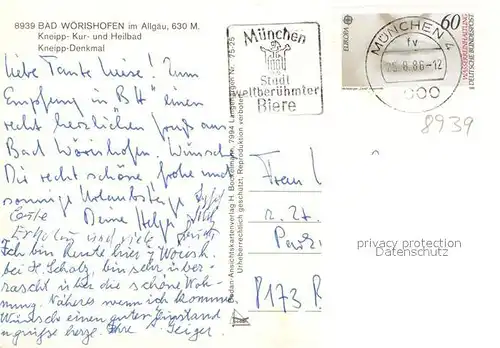 8939 BAD WÖRISHOFEN im Allgäu, 630 M.
Kneipp- Kur- und Heilbad
Kneipp-Denkmal
Liebe Tante Luise! Zum
Empfang in "BH" einen
recht herzlichen Gruß aus
Bad Wörishofen. Wünsche
Dir recht schöne, frohe und
sonnige Urlaubstage
Deine Helga
Gute
Erholung und viele
Ich bin heute hier in Wörish.
bei H. Scholz, bin sehr über-
rascht über die schöne Woh-
nung. Näheres wenn ich komme
Wünsche einen guten Einstand
grüße herzl. Ihre Geiger.
Baden-Ansichtskartenverlag H. Bockelmann, 7994 Langenargen Nr. 75-25
Urheberrechtlich geschützt, Reproduktion verboten
München
Stadt
weltberühmter
Biere
MÜNCHEN 4
fv
25.8.86-12
8000
EUROPA
60
WASSERREINHALTUNG
DEUTSCHE BUNDESPOST
8939
Frau
z. Zt.
Park
8173
privacy protection
Datenschutz